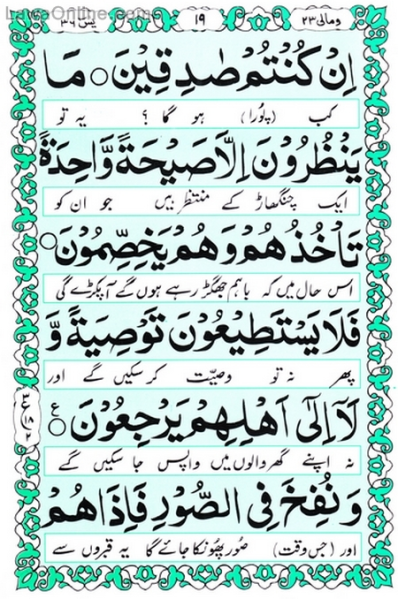 ومالی ۲۳ ۱۹ یٰسٓ ۳۶
اِنْ كُنْتُمْ صٰدِقِیْنَ ○ مَا
کب (پُورا) ہو گا ؟ یہ تو
یَنْظُرُوْنَ اِلَّا صَیْحَةً وَّاحِدَةً
ایک چنگھاڑ کے منتظر ہیں جو ان کو
تَاْخُذُهُمْ وَهُمْ یَخِصِّمُوْنَ ○
اس حال میں کہ باہم جھگڑ رہے ہوں گے آ پکڑے گی
فَلَا یَسْتَطِیْعُوْنَ تَوْصِیَةً وَّ
پھر نہ تو وصیّت کر سکیں گے اور
لَاۤ اِلٰۤی اَهْلِهِمْ یَرْجِعُوْنَ ○
نہ اپنے گھر والوں میں واپس جا سکیں گے
وَنُفِخَ فِی الصُّوْرِ فَاِذَا هُمْ
اور (جس وقت) صُور پھُونکا جائے گا یہ قبروں سے